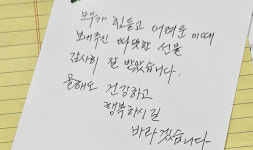 모두가 힘들고 어려운 이때
보내주신 따뜻한 선물
감사히 잘 받았습니다.
올해도 건강하고
행복하시길
바라겠습니다